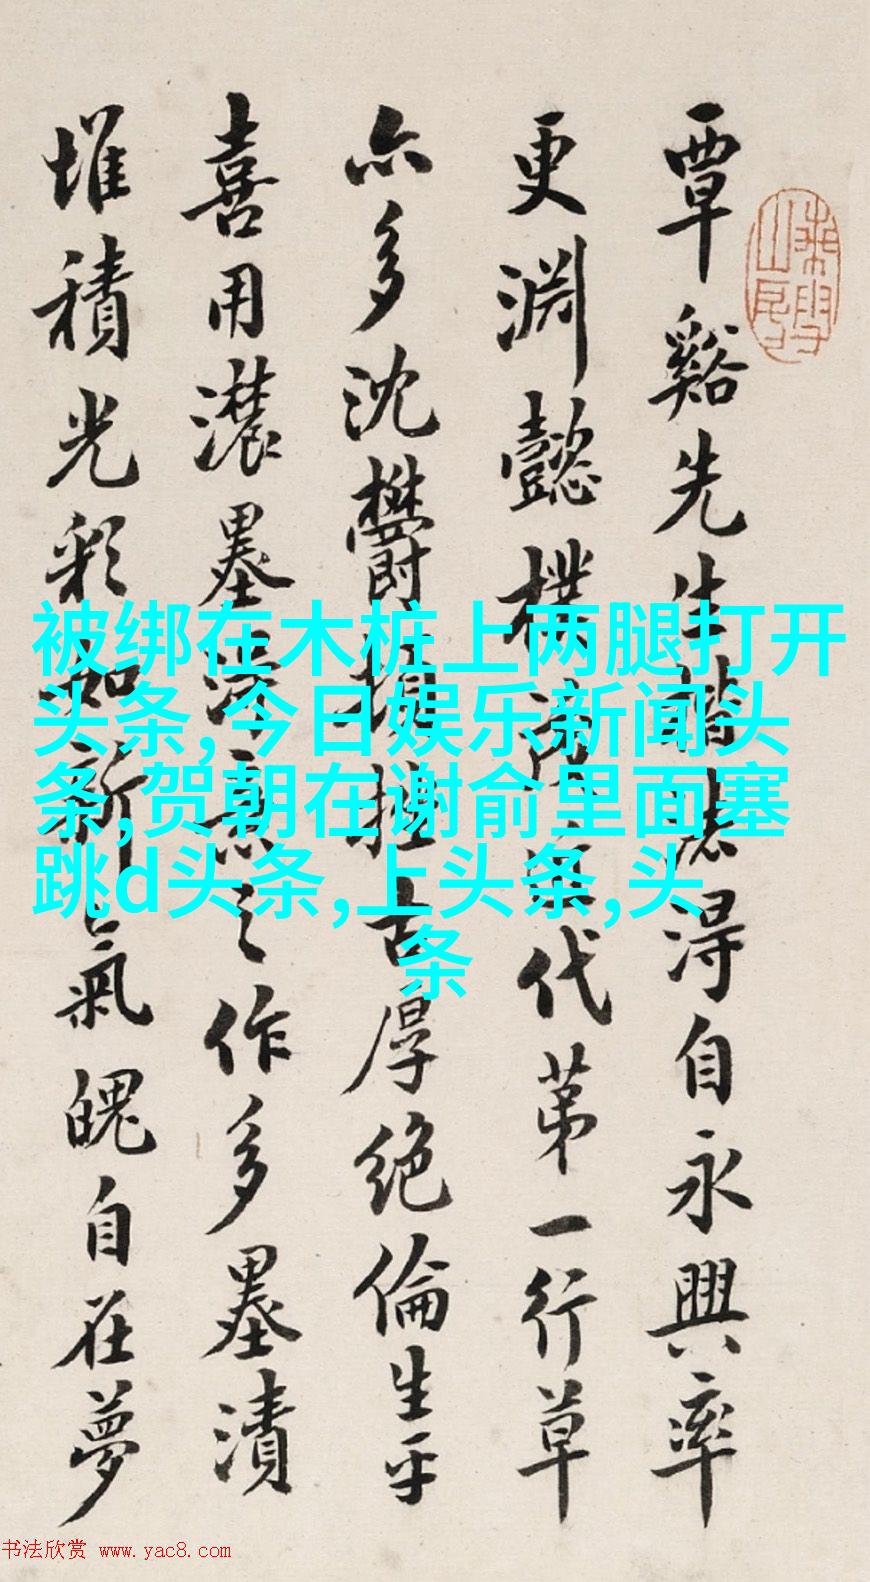 覃谿先生楷淂自永興率
更淵懿樸代第一行草
亦多沈鬱頓挫古厚絕倫生平
喜用濃墨之作多墨漬
堆積光彩如新氣魄自在夢
被绑在木桩上两腿打开
头条,今日娱乐新闻头
条,贺朝在谢俞里面塞
跳d头条,上头条,头
条
书法欣赏 www.yac8.com